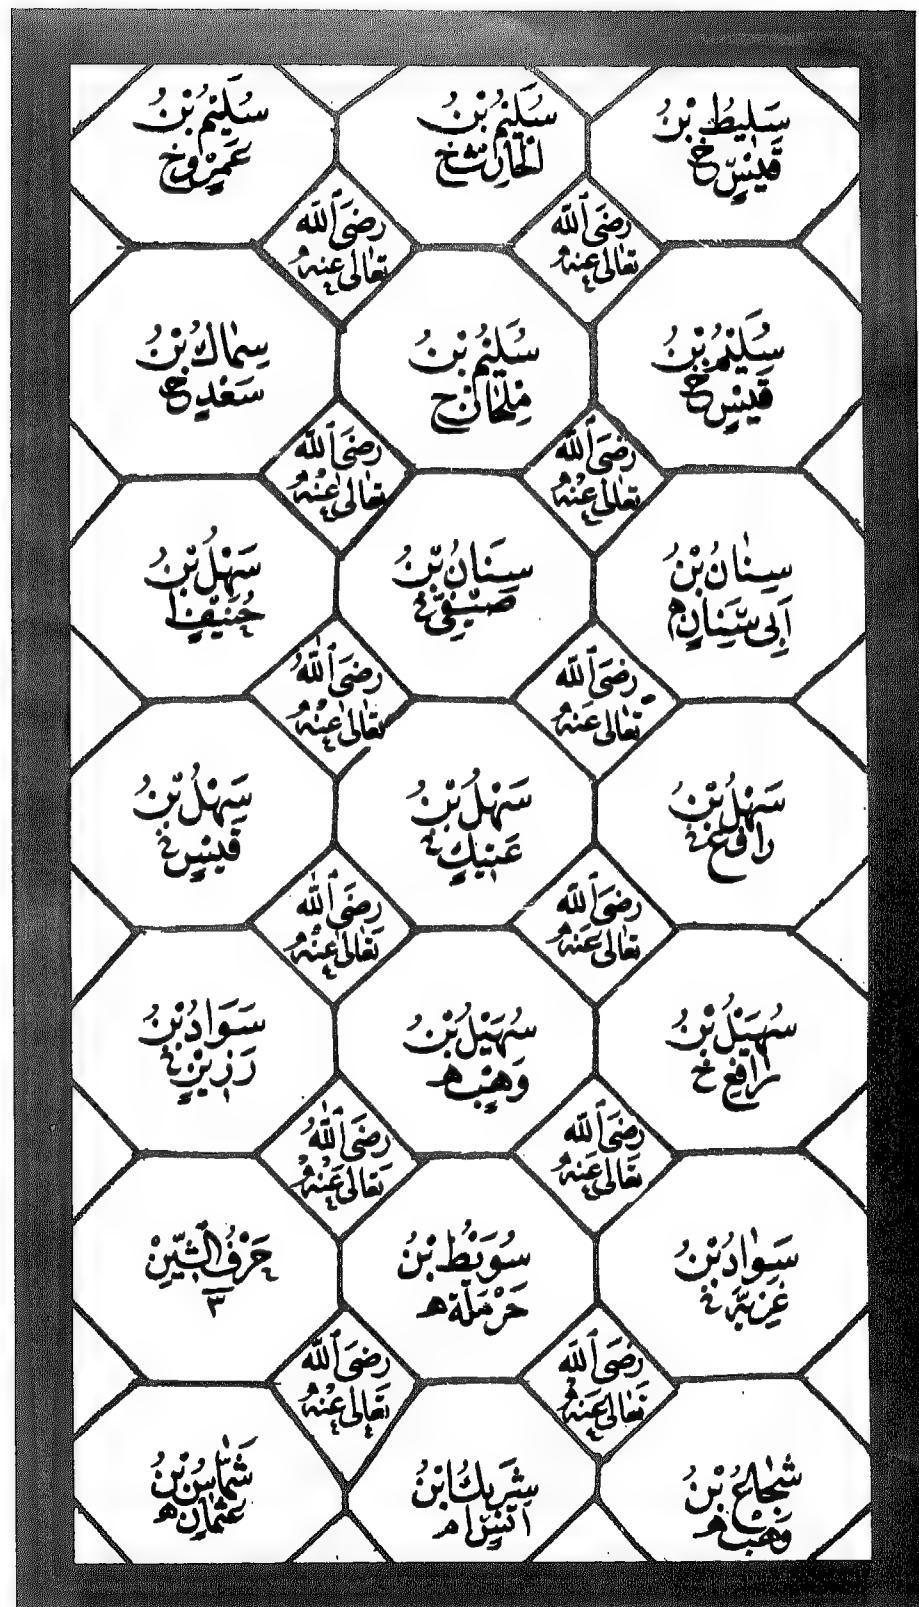 سَلِيطُ بْنُ
قَيْسٍ خ
سُلَيْمُ بْنُ
الْحَارِثِ خ
سُلَيْمُ بْنُ
عَمْرٍو خ
رَضِيَ اللّٰهُ
تَعَالٰى عَنْهُ
رَضِيَ اللّٰهُ
تَعَالٰى عَنْهُ
سُلَيْمُ بْنُ
قَيْسٍ خ
سُلَيْمُ بْنُ
مِلْحَانَ خ
سِمَاكُ بْنُ
سَعْدٍ خ
رَضِيَ اللّٰهُ
تَعَالٰى عَنْهُ
رَضِيَ اللّٰهُ
تَعَالٰى عَنْهُ
سِنَانُ بْنُ
اَبِي سِنَانٍ ه
سِنَانُ بْنُ
صَيْفِيٍّ خ
سَهْلُ بْنُ
حُنَيْفٍ ا
رَضِيَ اللّٰهُ
تَعَالٰى عَنْهُ
رَضِيَ اللّٰهُ
تَعَالٰى عَنْهُ
سَهْلُ بْنُ
رَافِعٍ خ
سَهْلُ بْنُ
عَتِيكٍ خ
سَهْلُ بْنُ
قَيْسٍ خ
رَضِيَ اللّٰهُ
تَعَالٰى عَنْهُ
رَضِيَ اللّٰهُ
تَعَالٰى عَنْهُ
سُهَيْلُ بْنُ
رَافِعٍ خ
سُهَيْلُ بْنُ
وَهْبٍ ه
سَوَادُ بْنُ
رَزِيْنٍ خ
رَضِيَ اللّٰهُ
تَعَالٰى عَنْهُ
رَضِيَ اللّٰهُ
تَعَالٰى عَنْهُ
سَوَادُ بْنُ
غَزِيَّةَ خ
سُوَيْبِطُ بْنُ
حَرْمَلَةَ ه
حَرْفُ الشِّيْنِ
٣
رَضِيَ اللّٰهُ
تَعَالٰى عَنْهُ
رَضِيَ اللّٰهُ
تَعَالٰى عَنْهُ
شُجَاعُ بْنُ
وَهْبٍ ه
شَرِيكُ ابْنُ
اَنَسٍ ا
شَمَّاسُ بْنُ
عُثْمَانَ ه